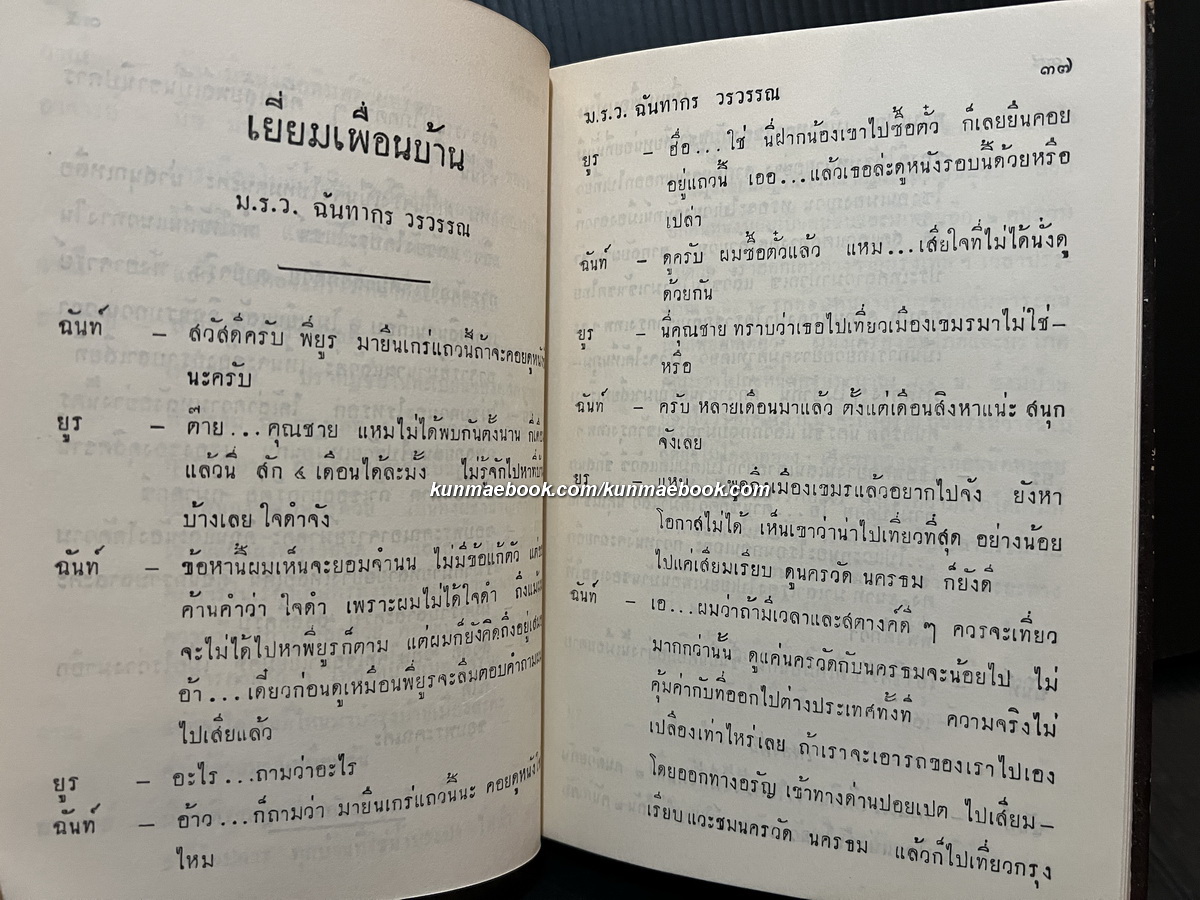 เยี่ยมเพื่อนบ้าน
ม.ร.ว. ฉันทากร วรวรรณ
ฉันท์ – สวัสดีครับ พี่ยูร มายืนเกร่แถวนี้ถ้าจะคอยดูหนัง
นะครับ
ยูร – ต๊าย...คุณชาย แหมไม่ได้พบกันตั้งนาน
แล้วนี่ สัก ๔ เดือนได้ละมั้ง ไม่รู้จักไปหาที่บ้าน
บ้างเลย ใจดำจัง
ฉันท์ – ข้อหานี้ผมเห็นจะยอมจำนน ไม่มีข้อแก้ตัว
ค้านคำว่า ใจดำ เพราะผมไม่ได้ใจดำ ถึงแม้
จะไม่ได้ไปหาพี่ยูรก็ตาม แต่ผมก็ยังคิดถึงอยู่เสมอ
อ้า...เดี๋ยวก่อนดูเหมือนพี่ยูรจะลืมตอบคำถาม
ไปเสียแล้ว
ยูร – อะไร...ถามว่าอะไร
ฉันท์ – อ้าว...ก็ถามว่า มายืนเกร่แถวนี้นะ คอยดูหนัง
ไหม
๓๗
ม.ร.ว. ฉันทากร วรวรรณ
ยูร – ฮื่อ...ใช่ นี่ฝากน้องเขาไปซื้อตั๋ว ก็เลยยืนคอย
อยู่แถวนี้ เออ...แล้วเธอล่ะดูหนังรอบนี้ด้วยหรือ
เปล่า
ฉันท์ – ดูครับ ผมซื้อตั๋วแล้ว แหม...เสียใจที่ไม่ได้นั่งดู
ด้วยกัน
ยูร – นี่คุณชาย ทราบว่าเธอไปเที่ยวเมืองเขมรมาไม่ใช่–
หรือ
ฉันท์ – ครับ หลายเดือนมาแล้ว ตั้งแต่เดือนสิงหาแน่ะ สนุก
จังเลย
ยูร – แหม พูดถึงเมืองเขมรแล้วอยากไปจัง ยังหา
kunmaebook.com/kunmaebook.com
โอกาสไม่ได้ เห็นเขาว่าน่าไปเที่ยวที่สุด อย่างน้อย
ไปแค่เสียมเรียบ ดูนครวัด นครธม ก็ยังดี
ฉันท์ – เอ...ผมว่าถ้ามีเวลาและสตางค์ดี ๆ ควรจะเที่ยว
มากกว่านั้น ดูแค่นครวัดกับนครธมจะน้อยไป ไม่
คุ้มค่ากับที่ออกไปต่างประเทศทั้งที ความจริงไม่
เปลืองเท่าไหร่เลย ถ้าเราจะเอารถของเราไปเอง
โดยออกทางอรัญ เข้าทางด่านปอยเปต ไปเสียม–
เรียบ แวะชมนครวัด นครธม แล้วก็ไปเที่ยวกรุง